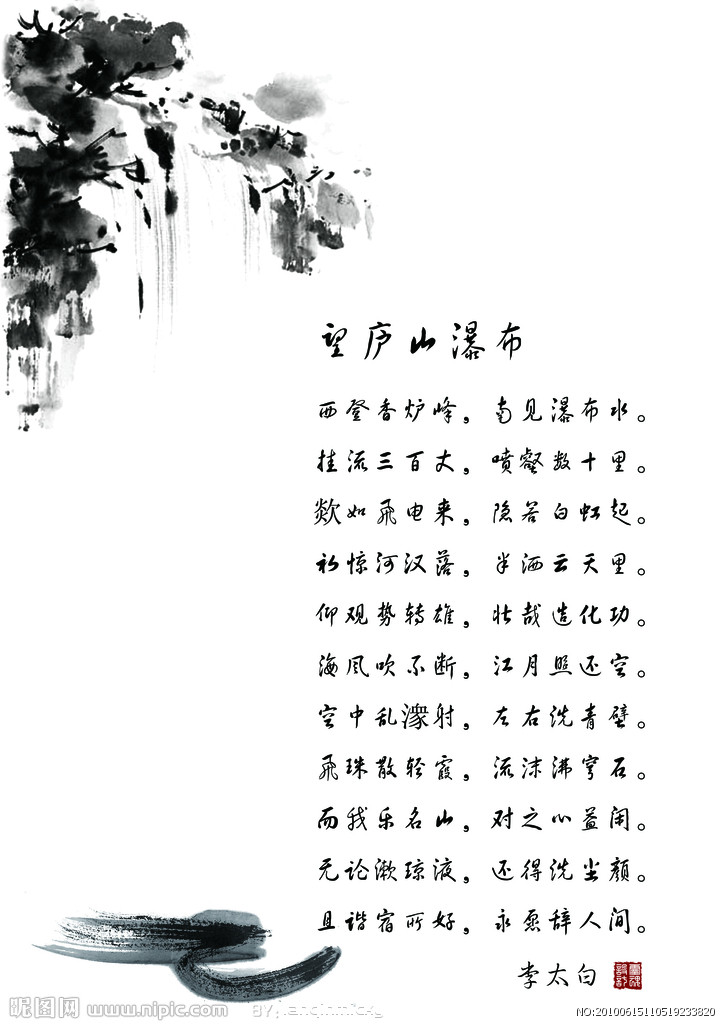 望庐山瀑布
西登香炉峰，南见瀑布水。
挂流三百丈，喷壑数十里。
欻如飛电来，隐若白虹起。
初惊河汉落，半洒云天里。
仰观势转雄，壮哉造化功。
海风吹不断，江月照还空。
空中乱潈射，左右洗青壁。
飛珠散轻霞，流沫沸穹石。
而我乐名山，对之心益闲。
无论漱琼液，还得洗尘颜。
且谐宿所好，永愿辞人间。
李太白
昵图网 www.nipic.com
NO:20100615110519233820